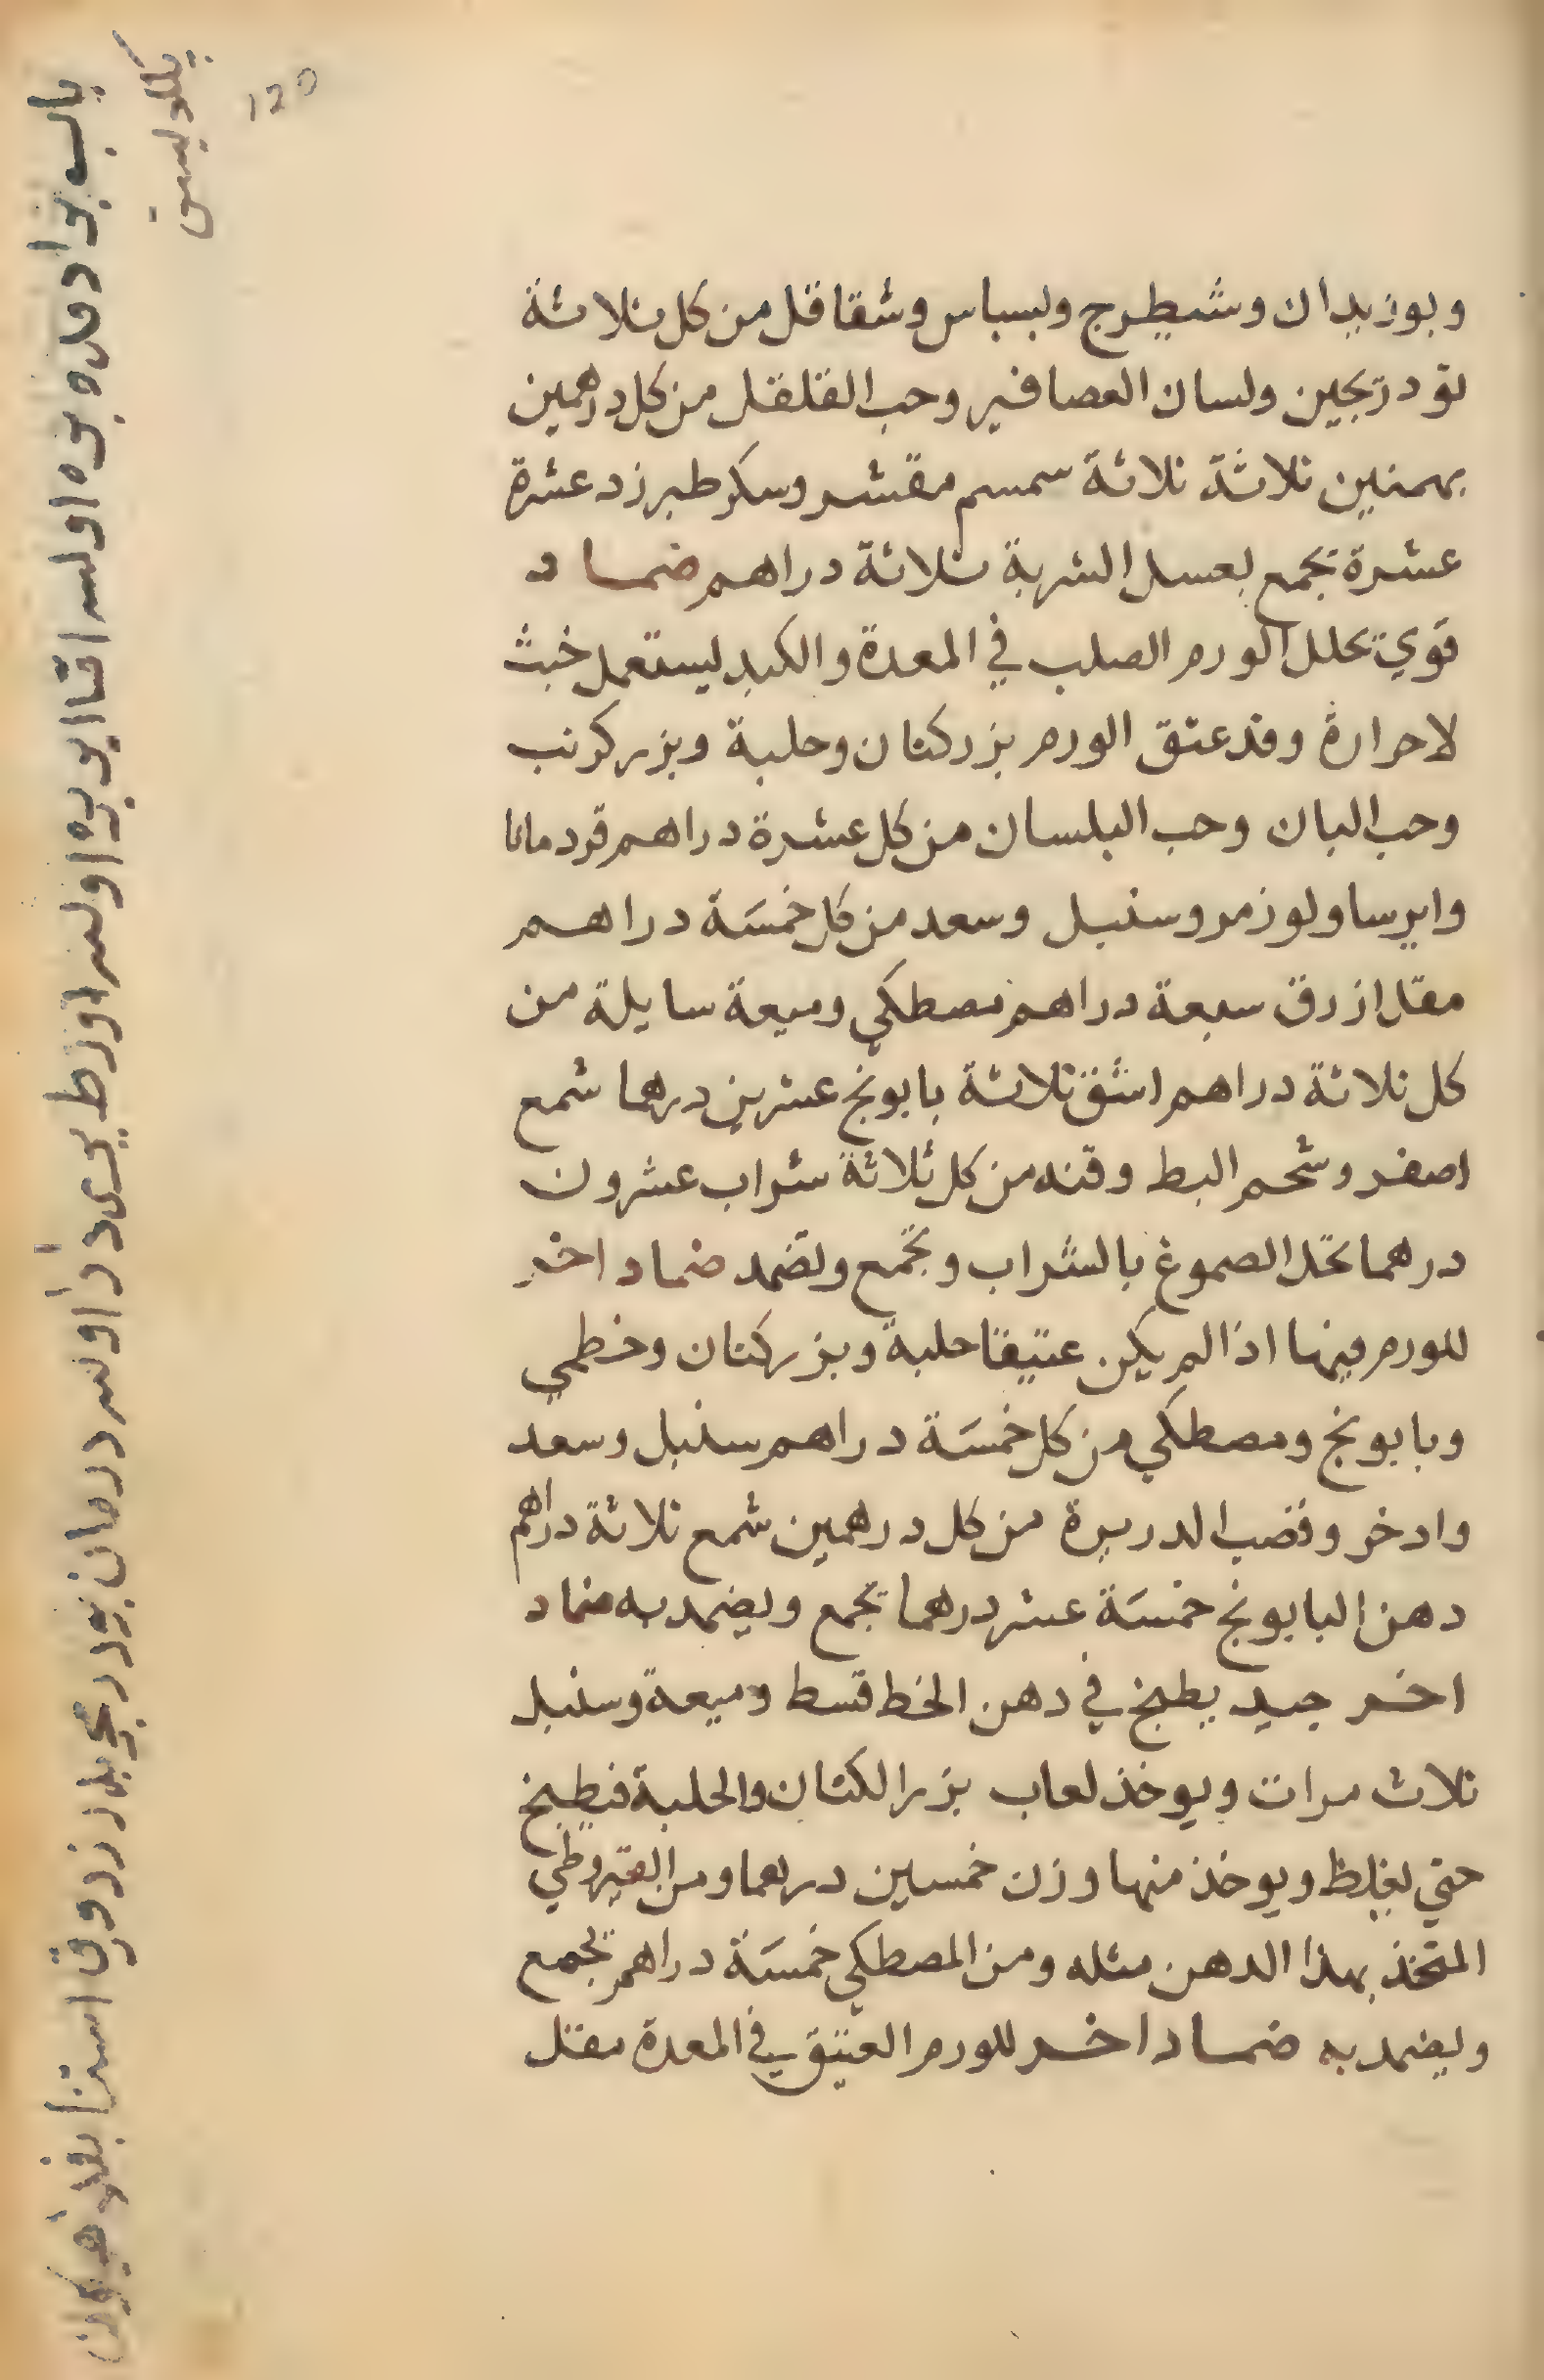 وبوزيدان وشيطرج ولبسباس وشقاقل من كل ثلاثة
تودريجين ولسان العصافير وحب القلقل من كل درهمين
بهمنين ثلاثة ثلاثة سمسم مقشر وسكر طبرزد عشرة
عشرة تجمع بعسل الشربة ثلاثة دراهم ضماد
قوي تحلل الورم الصلب في المعدة والكبد ليستعمل حيث
لا حرارة وقد عتق الورم بزر كتان وحلبة وبزر كرنب
وحب البان وحب البلسان من كل عشرة دراهم قردمانا
وايرسا ولوز مر وسنبل وسعد من كل خمسة دراهم
مقل ازرق سبعة دراهم مصطكي وميعة سايلة من
كل ثلاثة دراهم اشق ثلاثة بابونج عشرين درهما شمع
اصفر وشحم البط وقنه من كل ثلاثة شراب عشرون
درهما تحل الصموغ بالشراب وتجمع وتضمد ضماد اخر
للورم فيها اذا لم يكن عتيقا حلبة وبزر كتان وخطمي
وبابونج ومصطكي من كل خمسة دراهم سنبل وسعد
وادخر وقصب الدريرة من كل درهمين شمع ثلاثة دراهم
دهن البابونج خمسة عشر درهما تجمع ويضمد به ضماد
اخر جيد يطبخ في دهن الخط قسط وميعة وسنبل
ثلاث مرات ويوخذ لعاب بزر الكتان والحلبة فيطبخ
حتي يغلظ ويوخذ منها وزن خمسين درهما ومن القيروطي
المتخذ بهذا الدهن مثله ومن المصطكي خمسة دراهم تجمع
ويضمد به ضماد اخر للورم العتيق في المعدة مقل
120